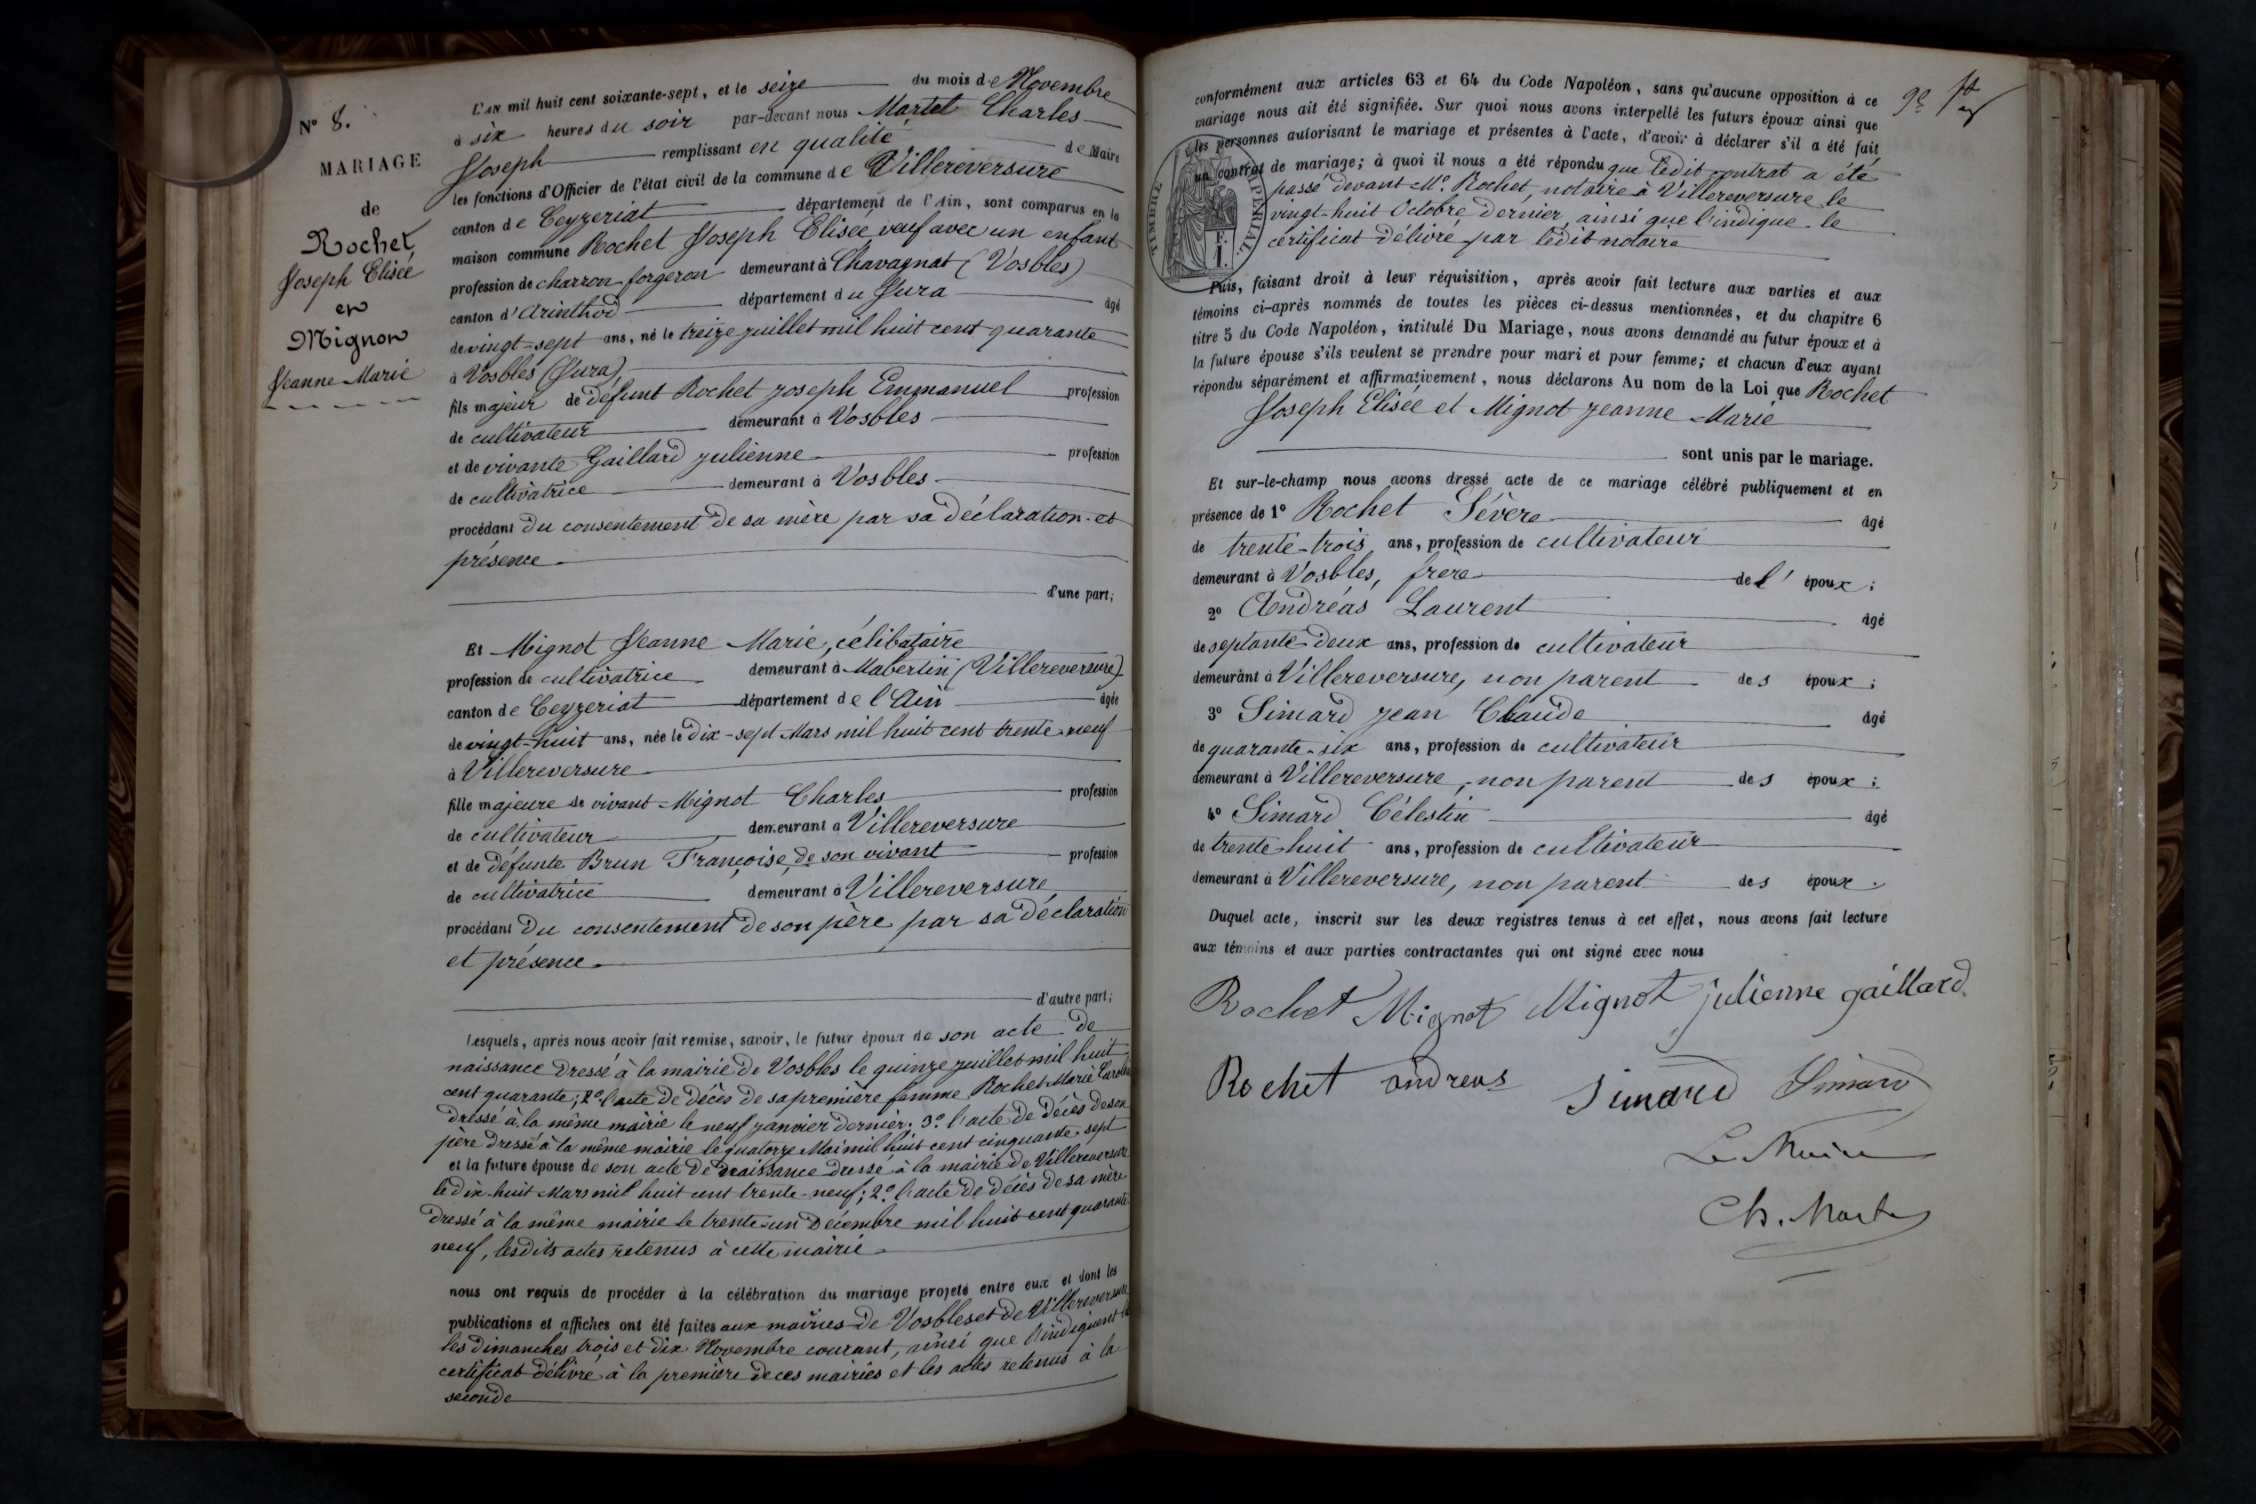 N° 8.
MARIAGE
de
Rochet
Joseph Elisée
et
Mignot
Jeanne Marie
L'AN mil huit cent soixante-sept, et le seize du mois de Novembre
à six heures du soir par-devant nous Martel Charles
Joseph remplissant en qualité de Maire
les fonctions d'Officier de l'état civil de la commune de Villereversure
canton de Ceyzeriat département de l'Ain, sont comparus en la
maison commune Rochet Joseph Elisée veuf avec un enfant
profession de charron forgeron demeurant à Chavagnat (Vosbles)
canton d'Arinthod département du Jura âgé
de vingt-sept ans, né le treize juillet mil huit cent quarante
à Vosbles (Jura)
fils majeur de défunt Rochet joseph Emmanuel profession
de cultivateur demeurant à Vosbles
et de vivante Gaillard julienne profession
de cultivatrice demeurant à Vosbles
procédant du consentement de sa mère par sa déclaration et
présence
d'une part;
Et Mignot Jeanne Marie, célibataire
profession de cultivatrice demeurant à Mabertin (Villereversure)
canton de Ceyzeriat département de l'Ain âgée
de vingt-huit ans, née le dix-sept Mars mil huit cent trente-neuf
à Villereversure
fille majeure de vivant Mignot Charles profession
de cultivateur demeurant à Villereversure
et de défunte Brun Françoise, de son vivant profession
de cultivatrice demeurant à Villereversure
procédant du consentement de son père par sa déclaration
et présence
d'autre part;
Lesquels, après nous avoir fait remise, savoir, le futur époux de son acte de
naissance dressé à la mairie de Vosbles le quinze juillet mil huit
cent quarante; 2° l'acte de décès de sa première femme Rochet Marie
dressé à la même mairie le neuf janvier dernier. 3° l'acte de décès de son
père dressé à la même mairie le quatorze Mai mil huit cent cinquante-sept
et la future épouse de son acte de naissance dressé à la mairie de Villereversure
le dix-huit Mars mil huit cent trente-neuf; 2° l'acte de décès de sa mère
dressé à la même mairie le trente-un Décembre mil huit cent quarante
neuf, lesdits actes retenus à cette mairie
nous ont requis de procéder à la célébration du mariage projeté entre eux et dont les
publications et affiches ont été faites aux mairies de Vosbles et de Villereversure
les dimanches trois et dix Novembre courant, ainsi que l'indiquent le
certificat délivré à la première de ces mairies et les actes retenus à la
seconde
conformément aux articles 63 et 64 du Code Napoléon, sans qu'aucune opposition à ce
mariage nous ait été signifiée. Sur quoi nous avons interpellé les futurs époux ainsi que
les personnes autorisant le mariage et présentes à l'acte, d'avoir à déclarer s'il a été fait
un contrat de mariage; à quoi il nous a été répondu que ledit contrat a été
passé devant Me. Rochet, notaire à Villereversure le
vingt-huit Octobre dernier, ainsi que l'indique le
certificat délivré par ledit notaire
TIMBRE IMPERIAL.
F.
1.
Puis, faisant droit à leur réquisition, après avoir fait lecture aux parties et aux
témoins ci-après nommés de toutes les pièces ci-dessus mentionnées, et du chapitre 6
titre 5 du Code Napoléon, intitulé Du Mariage, nous avons demandé au futur époux et à
la future épouse s'ils veulent se prendre pour mari et pour femme; et chacun d'eux ayant
répondu séparément et affirmativement, nous déclarons Au nom de la Loi que Rochet
Joseph Elisée et Mignot jeanne Marie
sont unis par le mariage.
Et sur-le-champ nous avons dressé acte de ce mariage célébré publiquement et en
présence de 1° Rochet Sévère âgé
de trente-trois ans, profession de cultivateur
demeurant à Vosbles, frère de l'époux;
2° Andréas Laurent âgé
de septante deux ans, profession de cultivateur
demeurant à Villereversure, non parent des époux;
3° Simard jean Claude âgé
de quarante-six ans, profession de cultivateur
demeurant à Villereversure, non parent des époux;
4° Simard Célestin âgé
de trente huit ans, profession de cultivateur
demeurant à Villereversure, non parent des époux.
Duquel acte, inscrit sur les deux registres tenus à cet effet, nous avons fait lecture
aux témoins et aux parties contractantes qui ont signé avec nous
Rochet Mignot Mignot julienne gaillard
Rochet andreas Simard Simard
Le Maire
Ch. Martel